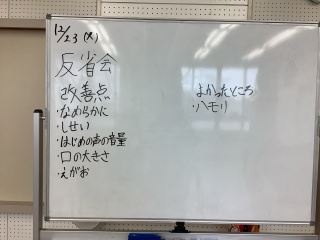 12/23(火)
反省会
改善点
・なめらかに
・しせい
・はじめの声の音量
・口の大きさ
・えがお
よかったところ
・ハモリ